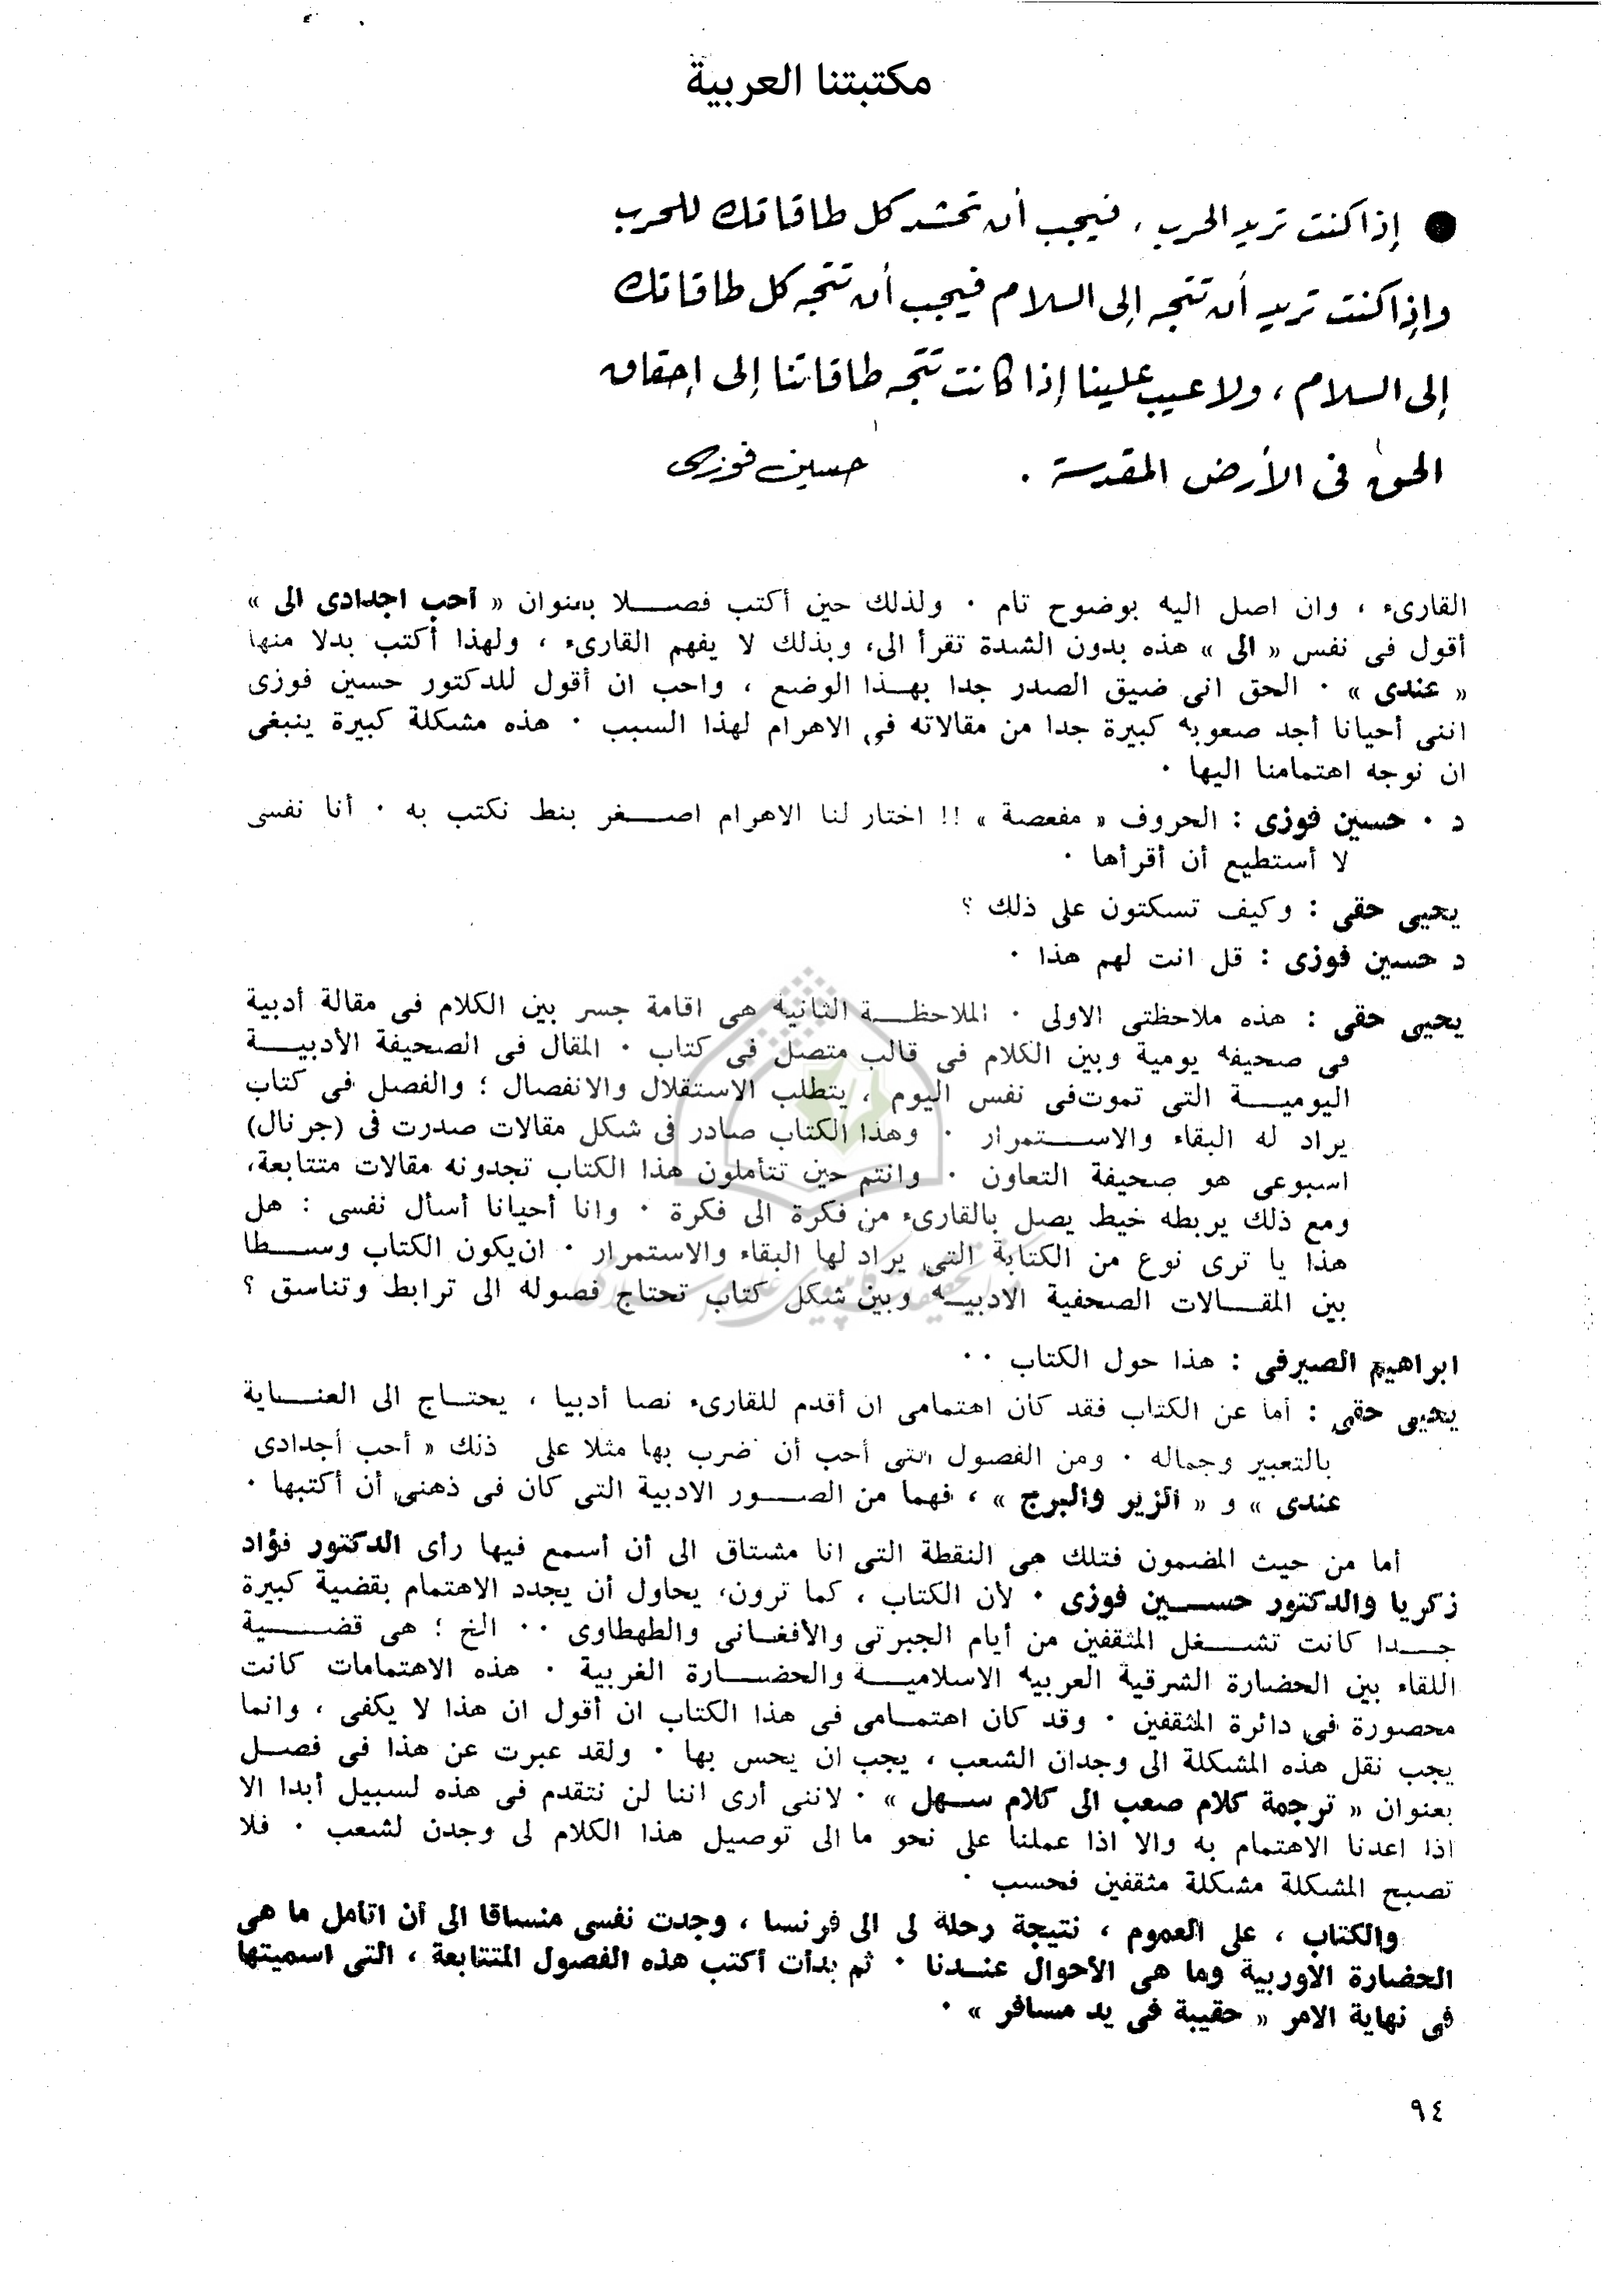 مكتبتنا العربية
● إذا كنت تريد الحرب ، فيجب أن تحشد كل طاقاتك للحرب
وإذا كنت تريد أن تتجه إلى السلام فيجب أن تتجه كل طاقاتك
إلى السلام ، ولا عيب علينا إذا كانت تتجه طاقاتنا إلى إحقاق
الحق فى الأرض المقدسة . حسين فوزى
القارىء ، وان اصل اليه بوضوح تام ٠ ولذلك حين أكتب فصلا بعنوان « أحب اجدادى الى »
أقول فى نفس « الى » هذه بدون الشدة تقرأ الى، وبذلك لا يفهم القارىء ، ولهذا أكتب بدلا منها
« عندى » ٠ الحق انى ضيق الصدر جدا بهذا الوضع ، واحب ان أقول للدكتور حسين فوزى
اننى أحيانا أجد صعوبه كبيرة جدا من مقالاته فى الاهرام لهذا السبب ٠ هذه مشكلة كبيرة ينبغى
ان نوجه اهتمامنا اليها ٠
د ٠ حسين فوزى : الحروف « مفعصة » !! اختار لنا الاهرام اصغر بنط نكتب به ٠ أنا نفسى
لا أستطيع أن أقرأها ٠
يحيى حقى : وكيف تسكتون على ذلك ؟
د حسين فوزى : قل انت لهم هذا ٠
يحيى حقى : هذه ملاحظتى الاولى ٠ الملاحظة الثانية هى اقامة جسر بين الكلام فى مقالة أدبية
فى صحيفه يومية وبين الكلام فى قالب متصل فى كتاب ٠ المقال فى الصحيفة الأدبية
اليومية التى تموت فى نفس اليوم ، يتطلب الاستقلال والانفصال ؛ والفصل فى كتاب
يراد له البقاء والاستمرار ٠ وهذا الكتاب صادر فى شكل مقالات صدرت فى (جرنال)
اسبوعى هو صحيفة التعاون ٠ وانتم حين تتأملون هذا الكتاب تجدونه مقالات متتابعة،
ومع ذلك يربطه خيط يصل بالقارىء من فكرة الى فكرة ٠ وانا أحيانا أسأل نفسى : هل
هذا يا ترى نوع من الكتابة التى يراد لها البقاء والاستمرار ٠ ان يكون الكتاب وسطا
بين المقالات الصحفية الادبيه وبين شكل كتاب تحتاج فصوله الى ترابط وتناسق ؟
ابراهيم الصيرفى : هذا حول الكتاب ٠٠
يحيى حقى : أما عن الكتاب فقد كان اهتمامى ان أقدم للقارىء نصا أدبيا ، يحتاج الى العناية
بالتعبير وجماله ٠ ومن الفصول التى أحب أن ضرب بها مثلا على ذلك « أحب أجدادى
عندى » و « الزير والبرج » ، فهما من الصور الادبية التى كان فى ذهنى أن أكتبها ٠
أما من حيث المضمون فتلك هى النقطة التى انا مشتاق الى أن أسمع فيها رأى الدكتور فؤاد
زكريا والدكتور حسين فوزى ٠ لأن الكتاب ، كما ترون، يحاول أن يجدد الاهتمام بقضية كبيرة
جدا كانت تشغل المثقفين من أيام الجبرتى والأفغانى والطهطاوى ٠٠ الخ ؛ هى قضية
اللقاء بين الحضارة الشرقية العربيه الاسلامية والحضارة الغربية ٠ هذه الاهتمامات كانت
محصورة فى دائرة المثقفين ٠ وقد كان اهتمامى فى هذا الكتاب ان أقول ان هذا لا يكفى ، وانما
يجب نقل هذه المشكلة الى وجدان الشعب ، يجب ان يحس بها ٠ ولقد عبرت عن هذا فى فصل
بعنوان « ترجمة كلام صعب الى كلام سهل » ٠ لاننى أرى اننا لن نتقدم فى هذه لسبيل أبدا الا
اذا اعدنا الاهتمام به والا اذا عملنا على نحو ما الى توصيل هذا الكلام لى وجدن لشعب ٠ فلا
تصبح المشكلة مشكلة مثقفين فحسب ٠
والكتاب ، على العموم ، نتيجة رحلة لى الى فرنسا ، وجدت نفسى منساقا الى أن اتأمل ما هى
الحضارة الاوربية وما هى الأحوال عندنا ٠ ثم بدأت أكتب هذه الفصول المتتابعة ، التى اسميتها
فى نهاية الامر « حقيبة فى يد مسافر » ٠
٩٤